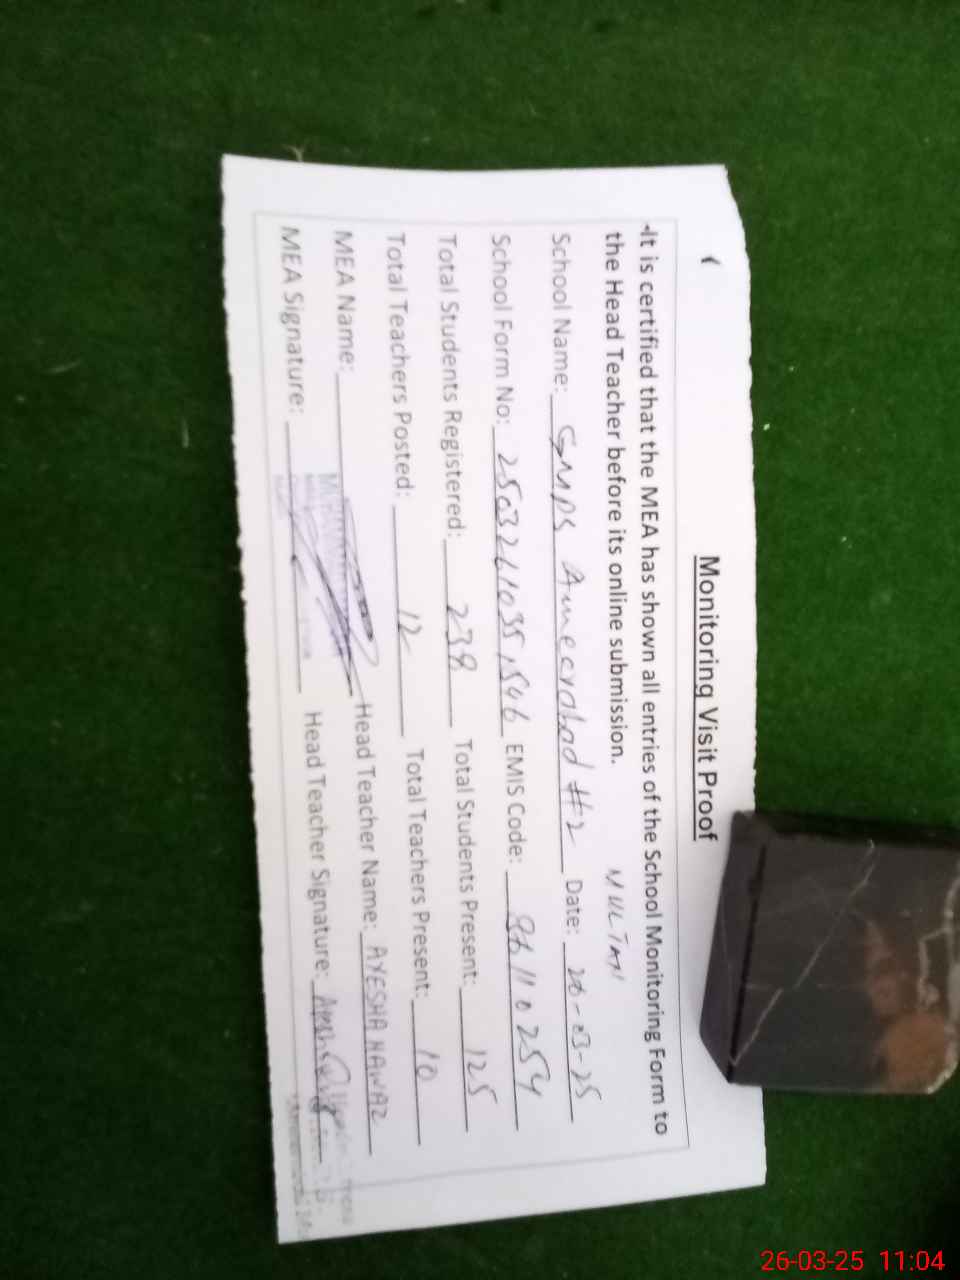 Monitoring Visit Proof
It is certified that the MEA has shown all entries of the School Monitoring Form to
the Head Teacher before its online submission.
MULTAN
School Name: GMPS Ameerabad #2 Date: 26-03-25
School Form No: EMIS Code:
Total Students Registered: 238 Total Students Present: 125
Total Teachers Posted: 12 Total Teachers Present: 10
MEA Name: Head Teacher Name: AYESHA NAWAZ
MEA Signature: Head Teacher Signature:
26-03-25 11:04